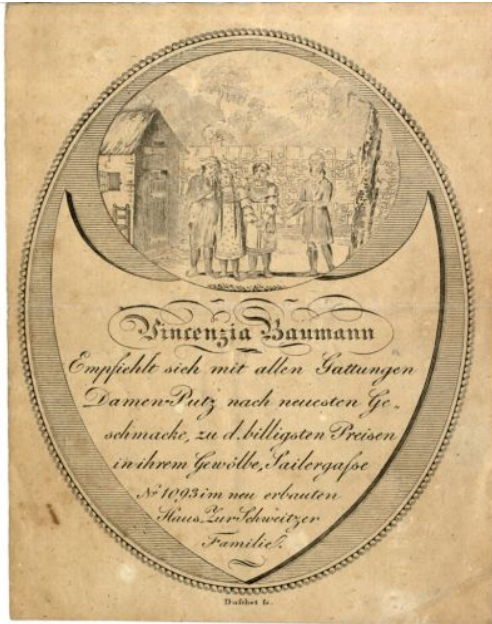 Vincenzia Baumann
Empfiehlt sich mit allen Gattungen
Damen-Putz nach neuesten Ge-
schmacke, zu d. billigsten Preisen
in ihrem Gewölbe, Sailergaſse
No 1093 im neu erbauten
Haus Zur Schweitzer
Familie.